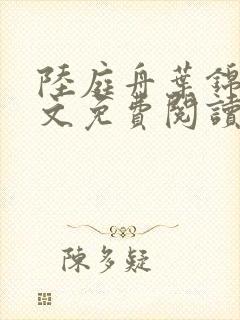 陸庭舟葉錦
文免費閱讀
陳多疑